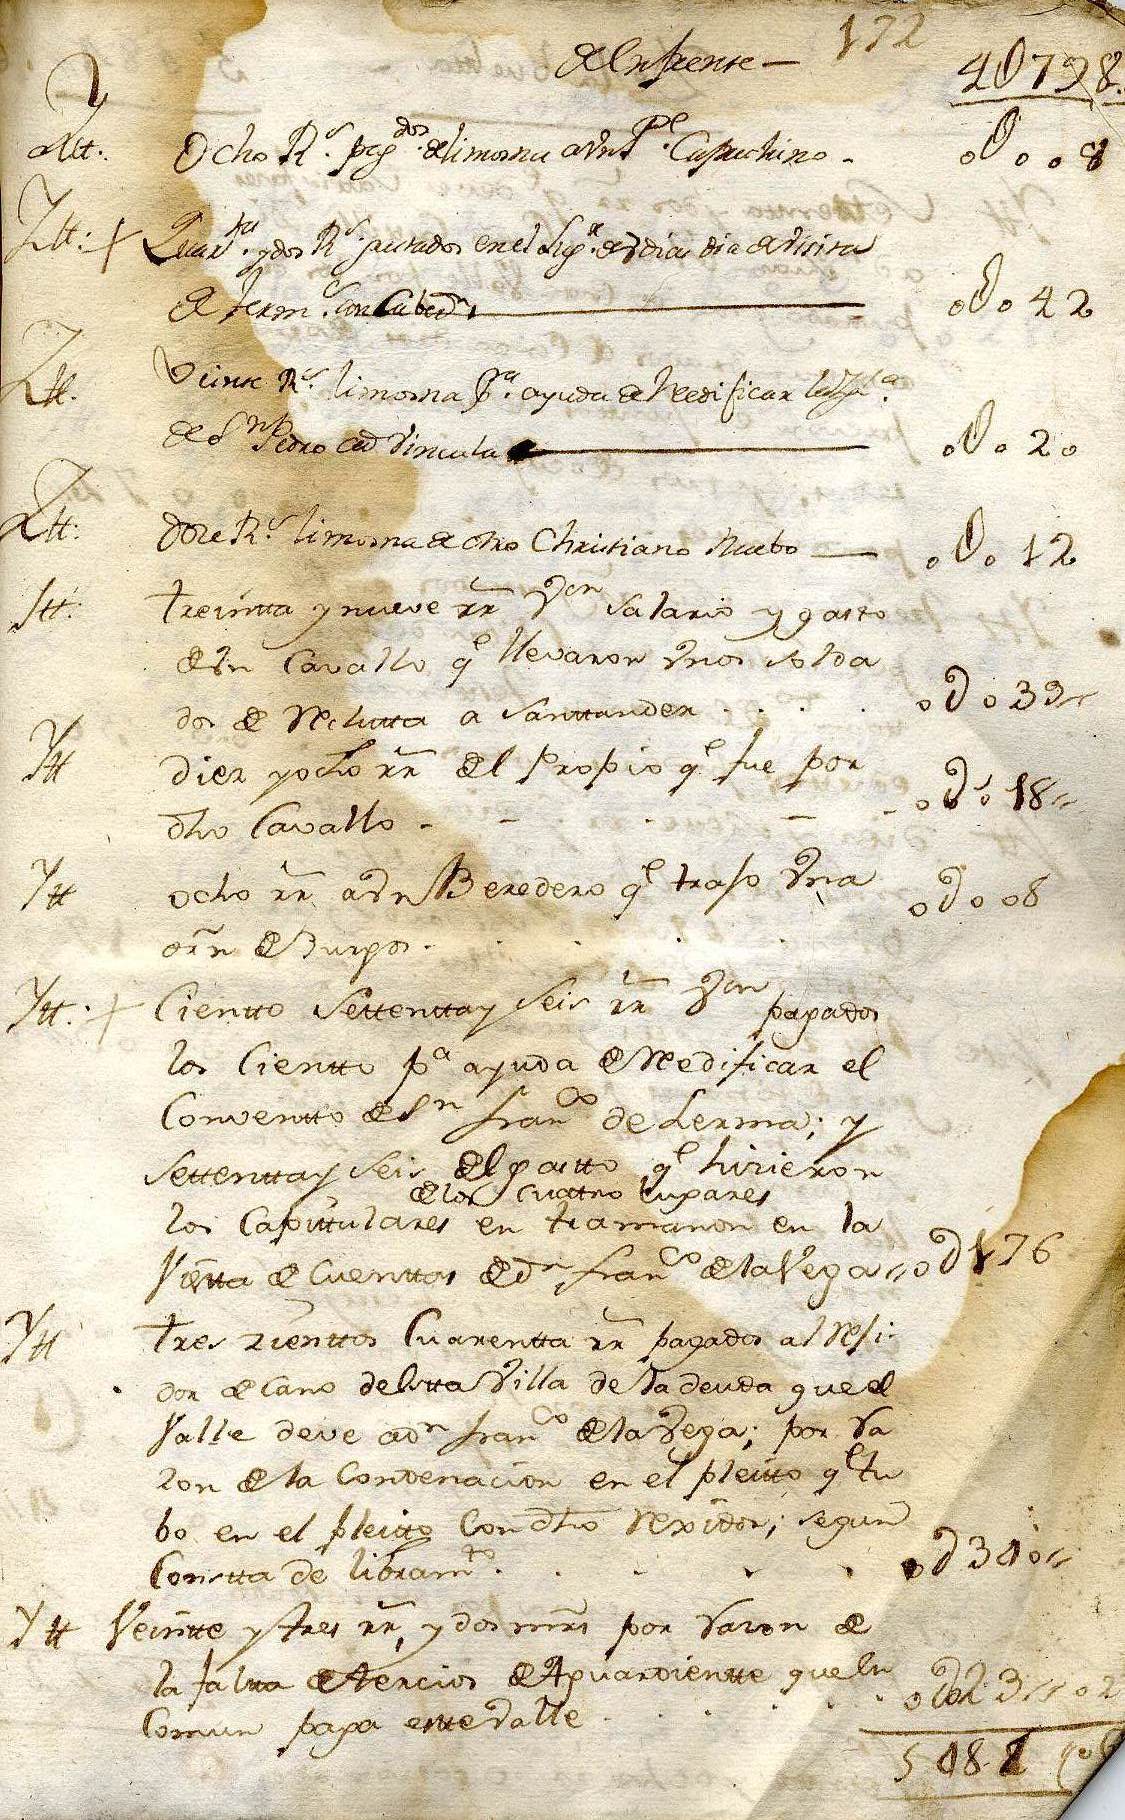 172
del enfrente — 4U798.
Ytt. Ocho Rs. pag.dos de limosna a Vn P.e Capuchino - oUoo8
Ytt: + Quar.ta y dos Rs. gastados en el Lug.r de dia dia de Visita
de term.s con Cabed.s oUo42
Ytt. Veinte Rs. limosna p.a ayuda de Reedificar la Ygl.a
de S.n Pedro ad Vincula oUo2o
Ytt: doze Rs. limosna de otro Christiano Nuebo — oUo12
Ytt: treintta y nueve rr.s Von salario y gasto
de Vn Cavallo q.e llevaron Vnos solda
dos de Reclutta a Santtander . . . . oUo39
Ytt diez y ocho rr.s del Propio q.e fue por
dho Cavallo - oUo18
Ytt ocho rr.s a Vn Beredero q.e trajo Vna
orn. de Burgos. oUoo8
Ytt: + Cientto Settentta y seis rr.s Von pagados
los Cientto p.a ayuda de Reedificar el
Conventto de S.n Fran.co de Lerma; y
Settentta y seis del gastto q.e hizieron
de los cuattro lugares
los Capittulares en tramanon en la
Vistta de Cuenttas de D.n Fran.co de la Vega oU176
Ytt tres zienttos Cuarentta rr.s pagados al Reji-
dor de Cano de estta Villa de la deuda que el
Valle deve a D.n Fran.co de la Vega; por Ra
zon de la Condenacion en el pleitto q.e tu
bo en el pleitto Con dho Rexidor; segun
Constta de libram.to . . . . oU34o
Ytt Veintte y tres rr.s y dos mrs por Razon de
la faltta de tercios de Aguardientte que en
Comun paga estte Valle . . . . oU23 o2